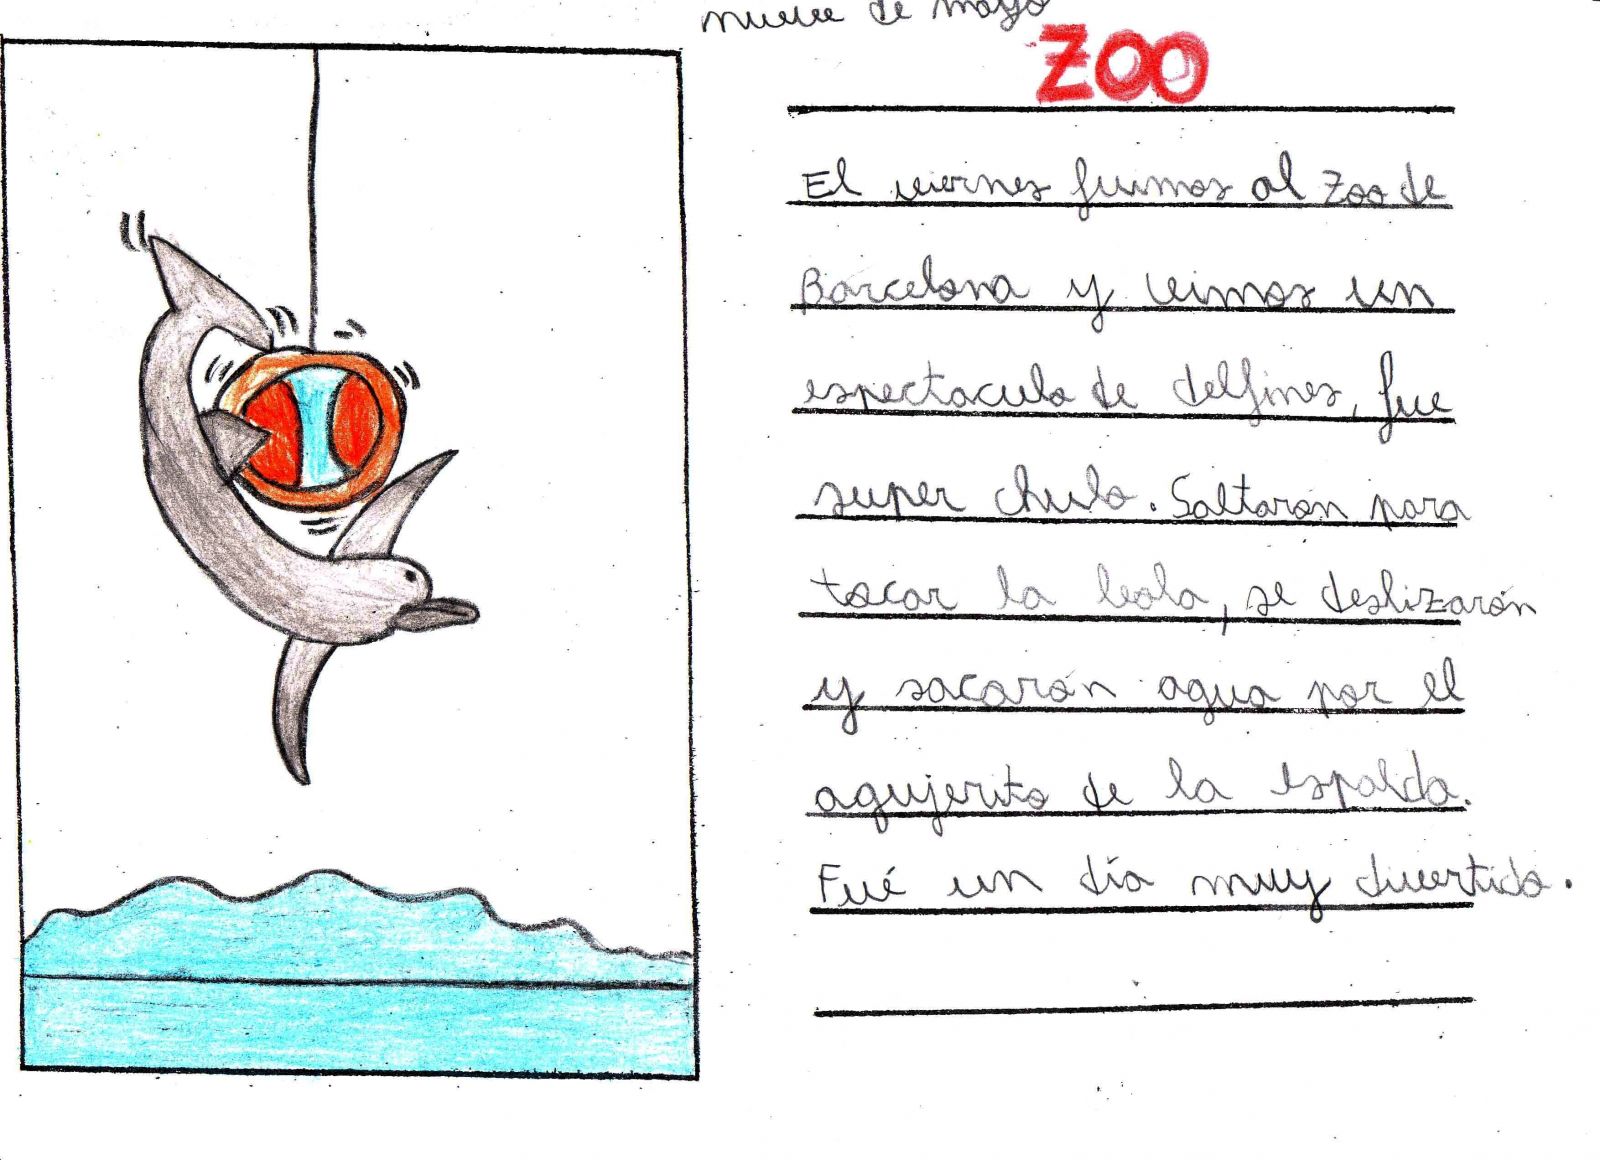 nueve de mayo
ZOO
El viernes fuimos al Zoo de
Barcelona y vimos un
espectaculo de delfines, fue
super chulo. Saltarón para
tocar la bola, se deslizarón
y sacarón agua por el
agujerito de la espalda.
Fué un día muy divertido.